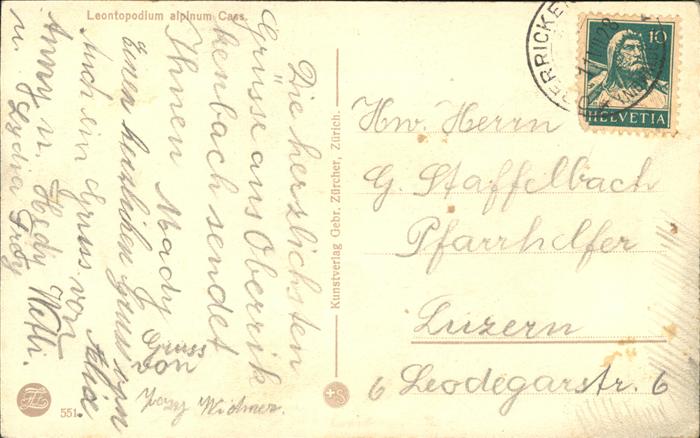 Leontopodium alpinum Cass.
Die herzlichsten
Grüsse aus Oberrik
kenbach sendet
Ihnen Mady
Einen herzlichen Gruss von
Auch ein Gruss von Alice
Anny u. Hedy
u. Lydia
Gruss
von
Widmer.
551.
Kunstverlag Gebr. Zürcher, Zürich.
+S
10
HELVETIA
Hw. Herrn
G. Staffelbach
Pfarrhelfer
Luzern
6 Leodegarstr. 6